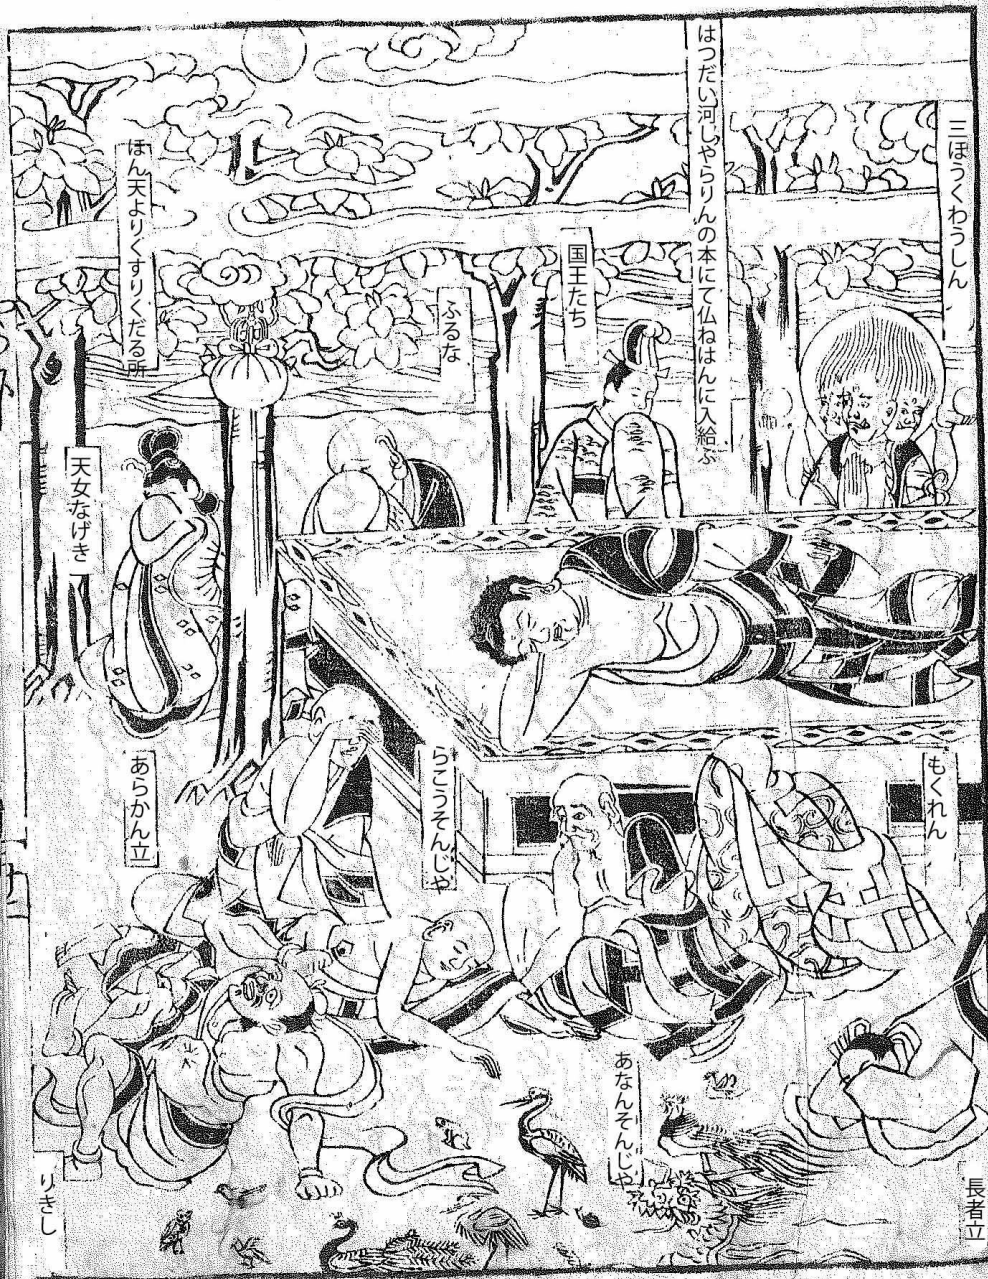 三ほうくわうしん
はつだい河しやらりんの本にて仏ねはんに入給ふ
国王たち
ふるな
ほん天よりくすりくだる所
天女なげき
もくれん
らこうそんじや
あらかん立
あなんそんじや
長者立
りきし